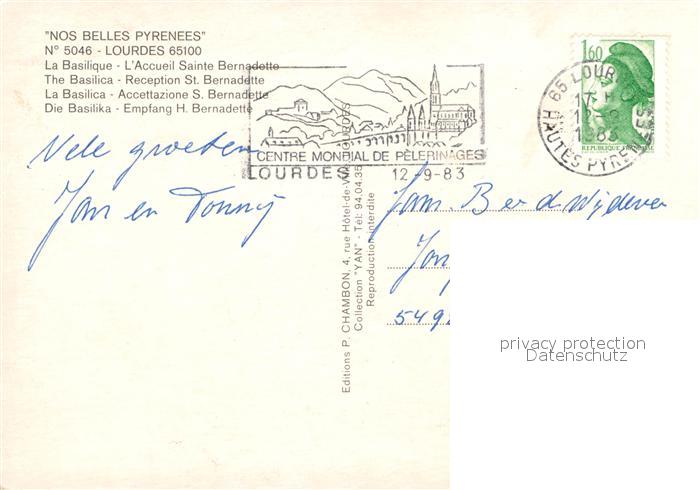 "NOS BELLES PYRENEES"
N° 5046 - LOURDES 65100
La Basilique - L'Accueil Sainte Bernadette
The Basilica - Reception St. Bernadette
La Basilica - Accettazione S. Bernadette
Die Basilika - Empfang H. Bernadette
Vele groeten
Jan en Tonny
CENTRE MONDIAL DE PÈLERINAGES
LOURDES 12-9-83
65 LOURDES
17 H
12-9
1983
HAUTES PYRENEES
1,60
REPUBLIQUE FRANÇAISE
Editions P. CHAMBON, 4, rue Hôtel-de-Ville LOURDES
Collection "YAN" - Tél: 94.04.35
Reproduction interdite
Fam. B v d Wijdeven
549
privacy protection
Datenschutz